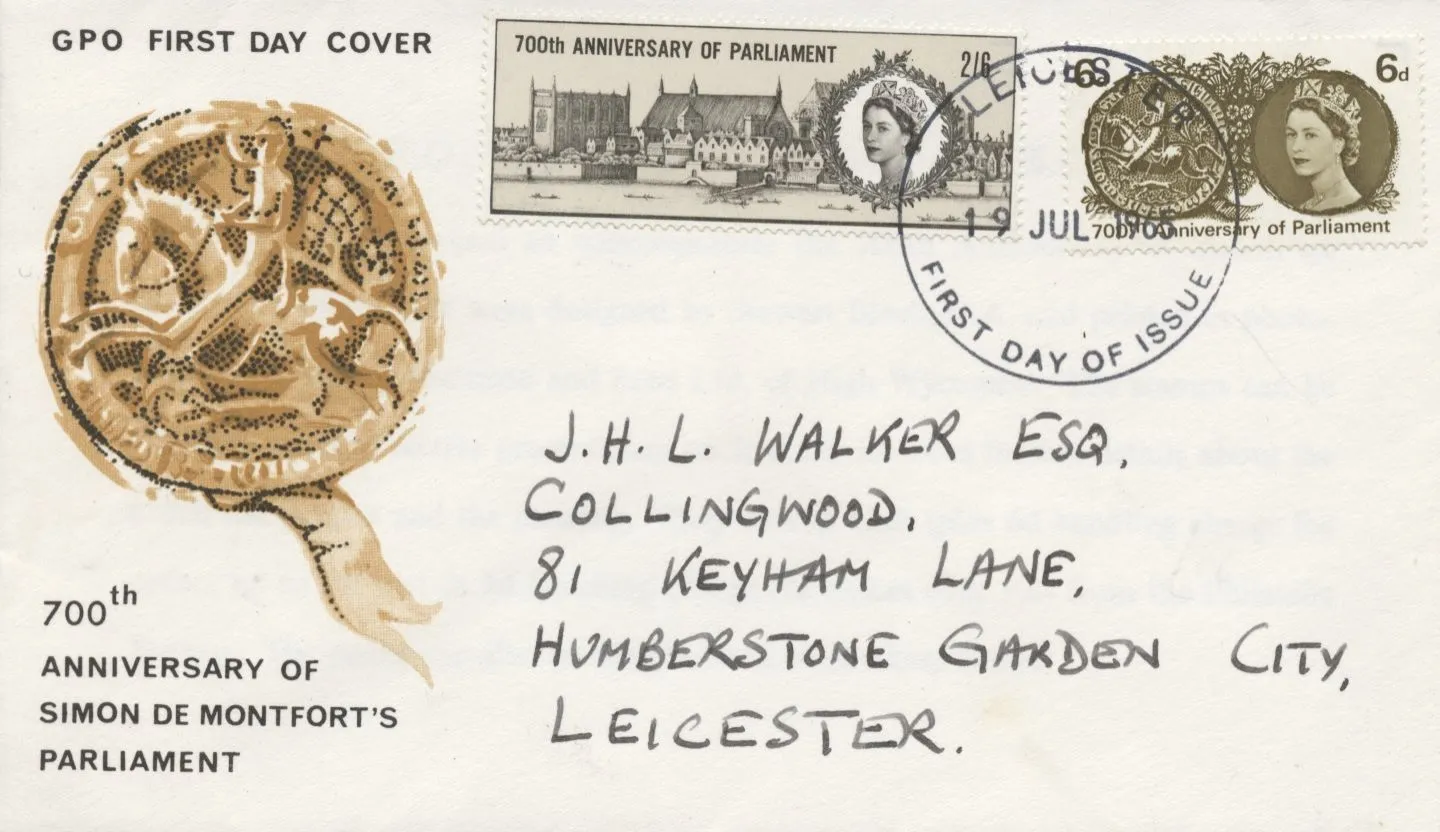 GPO FIRST DAY COVER
700th ANNIVERSARY OF PARLIAMENT
2/6
6d
700th Anniversary of Parliament
LEICESTER
19 JUL 1965
FIRST DAY OF ISSUE
J.H.L. WALKER ESQ.
COLLINGWOOD,
81 KEYHAM LANE,
HUMBERSTONE GARDEN CITY,
LEICESTER.
700th
ANNIVERSARY OF
SIMON DE MONTFORT'S
PARLIAMENT